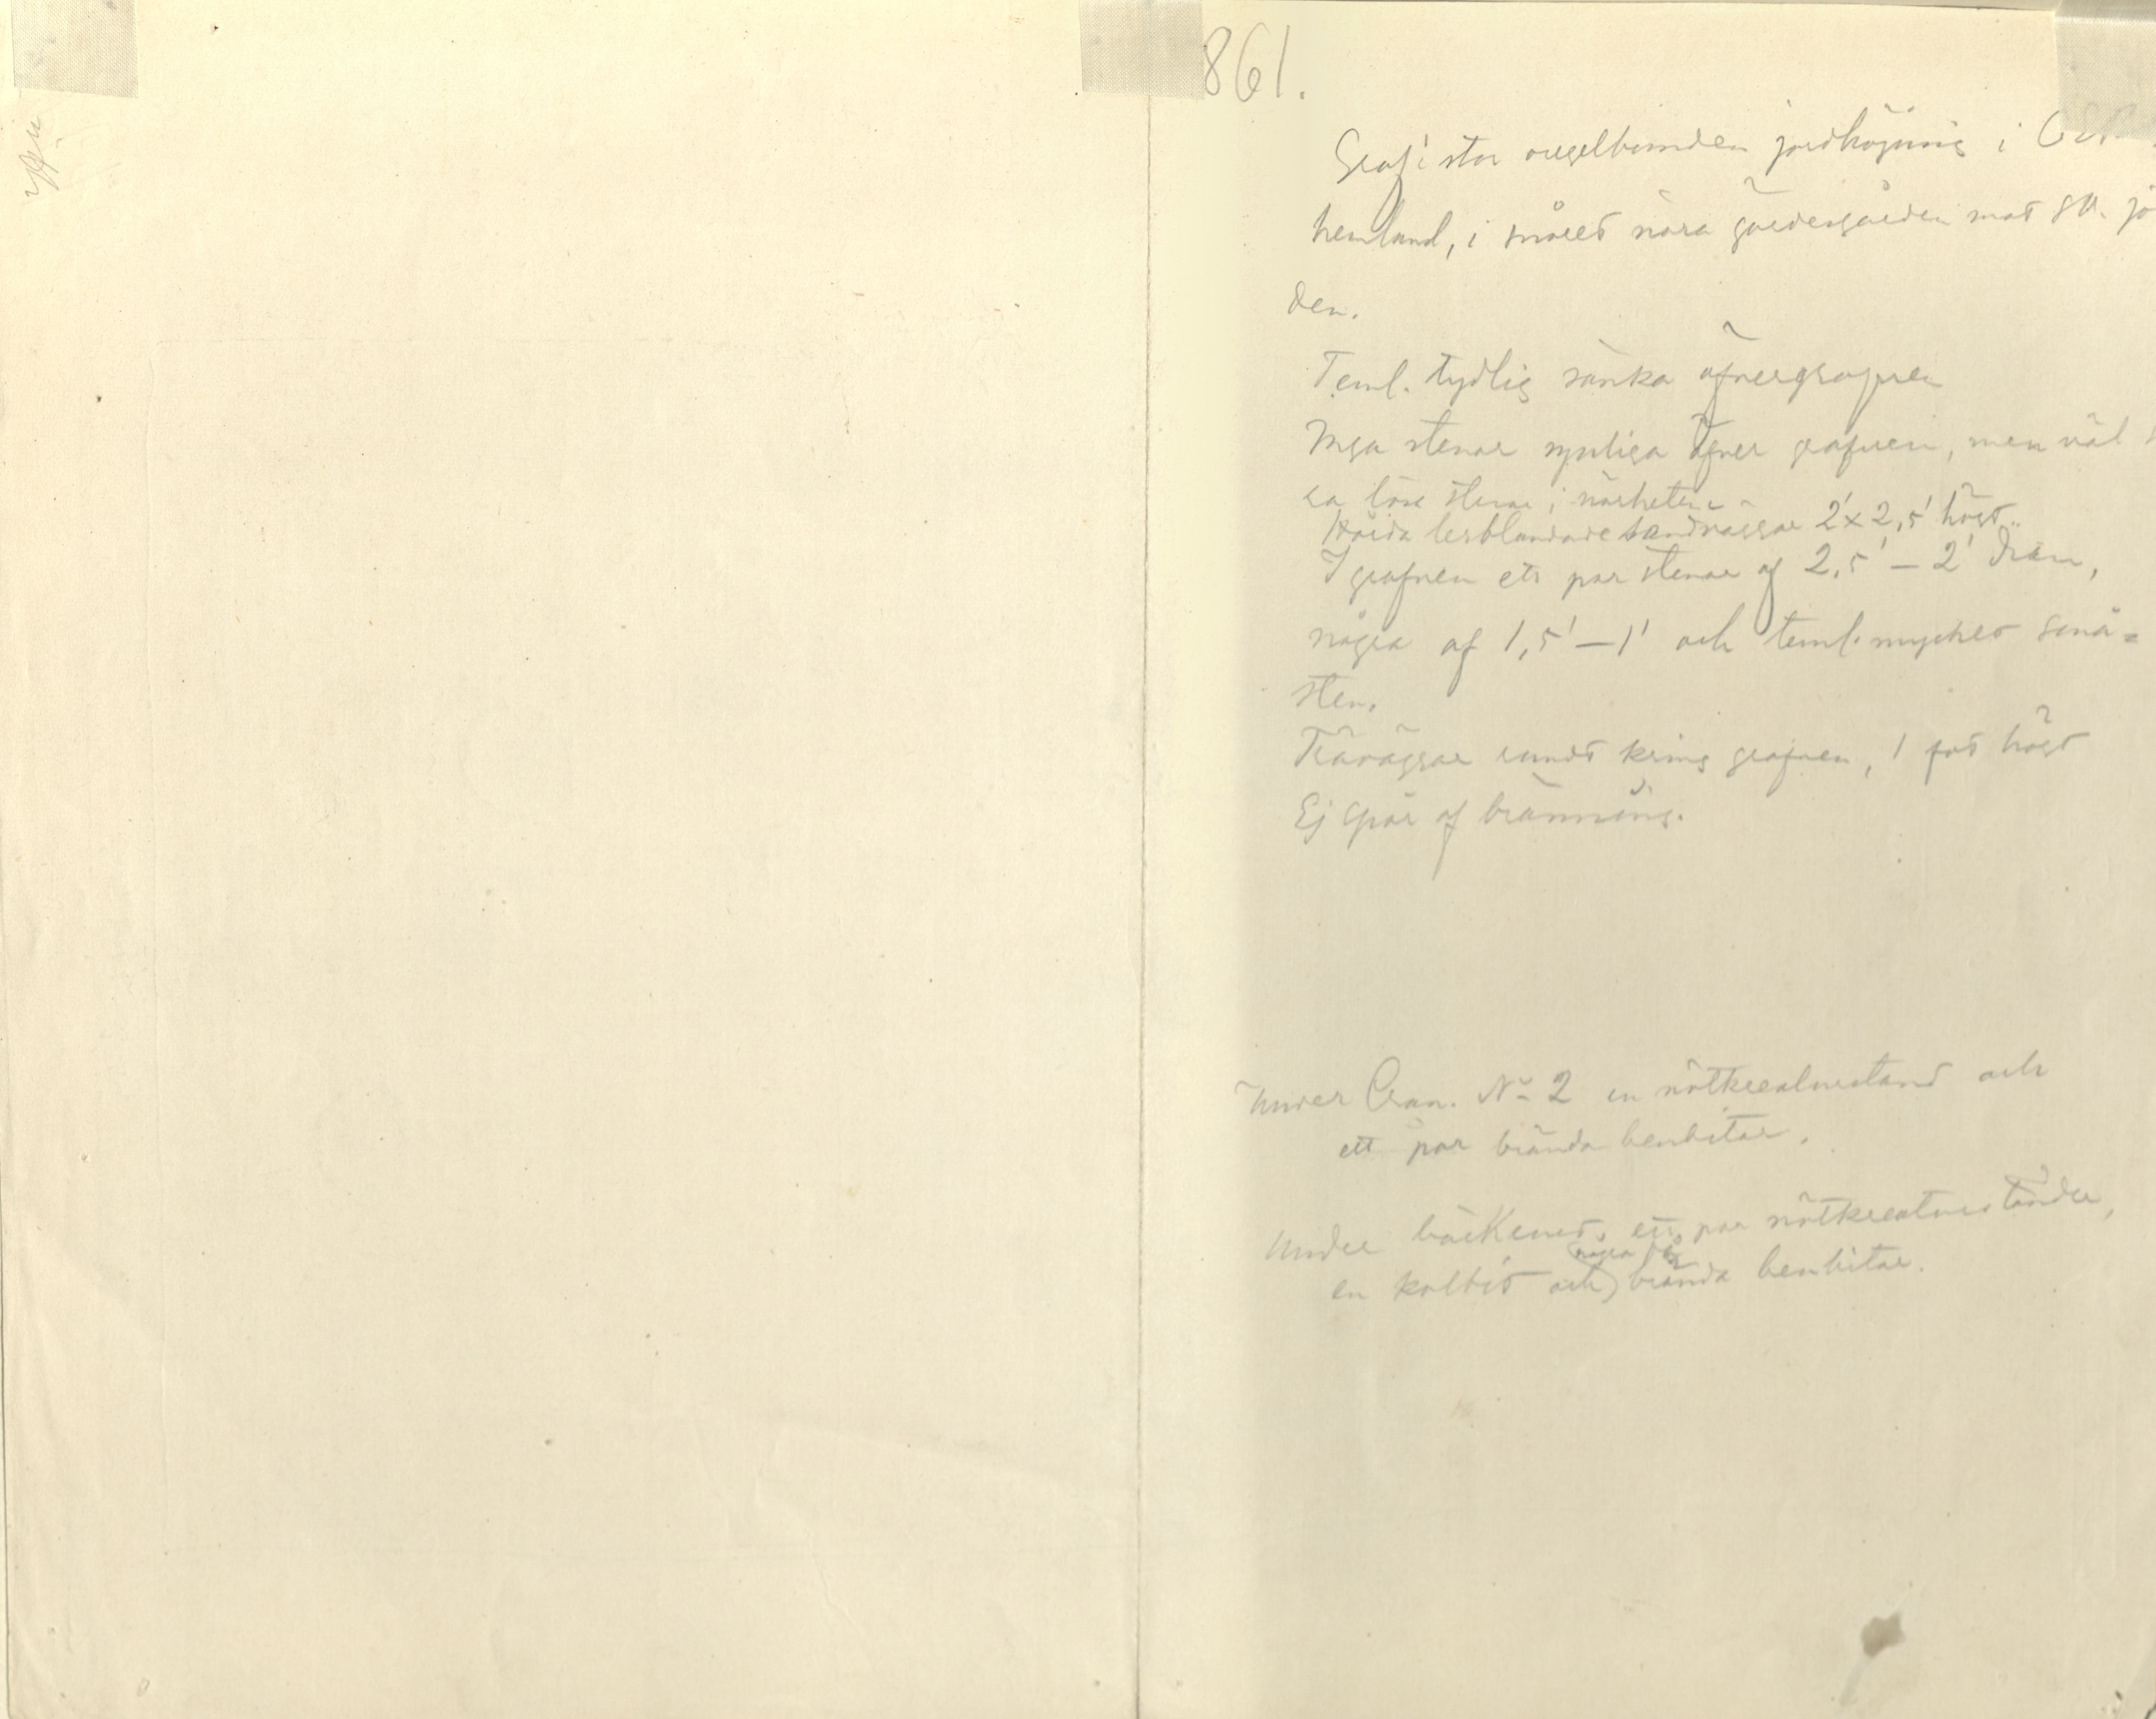 861.
Graf i stor oregelbunden jordhöjning i
hemland, i snåret nära gärdesgården mot
den.
Teml. tydlig sänka öfver grafven
Inga stenar synliga öfver grafven, men väl
ra lösa stenar i närheten
Hårda lerblandade sandväggar 2'x2,5' högt.
I grafven ett par stenar af 2,5'–2' diam,
några af 1,5'–1' och teml. mycket små-
sten.
Träväggar rundt kring grafven, 1 fot högt
Ej spår af bränning.
Under Cran. No 2 en nötkreaturstand och
ett par brända benbitar.
Under bäckenet, ett par nötkreaturständer,
några
en kolbit och brända benbitar.